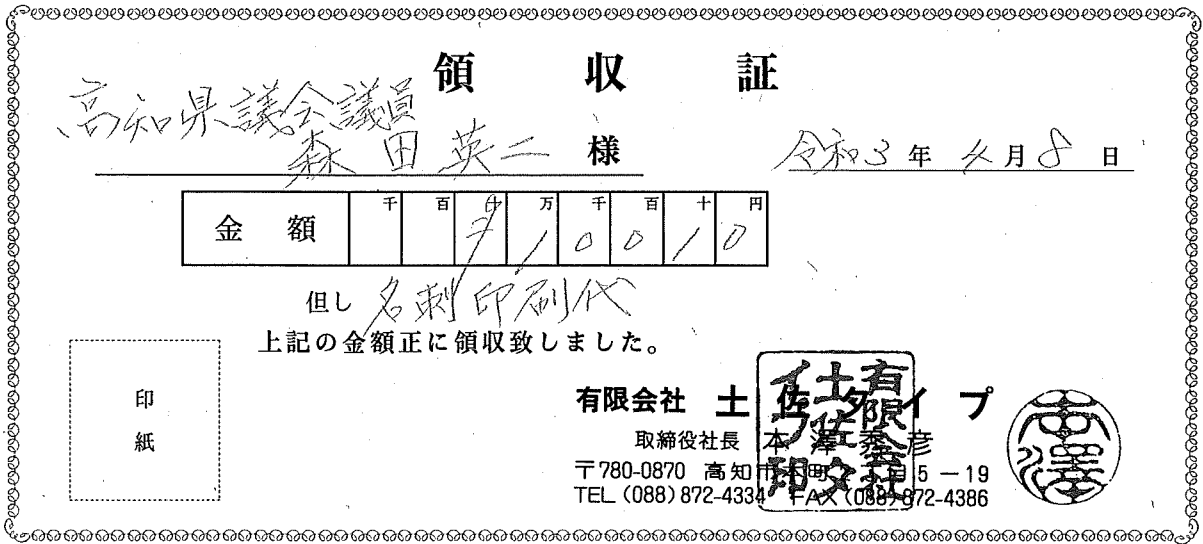 領 収 証
高知県議会議員
森田英二 様
令和3年4月8日
金額 千 百 十 万 千 百 十 円
¥ 1 0 0 1 0
但し 名刺印刷代
上記の金額正に領収致しました。
印紙
有限会社 土佐タイプ
取締役社長 本澤秀彦
〒780-0870 高知市本町 丁目5-19
TEL (088) 872-4334 FAX (088) 872-4386
有限会社土佐タイプ印
本澤